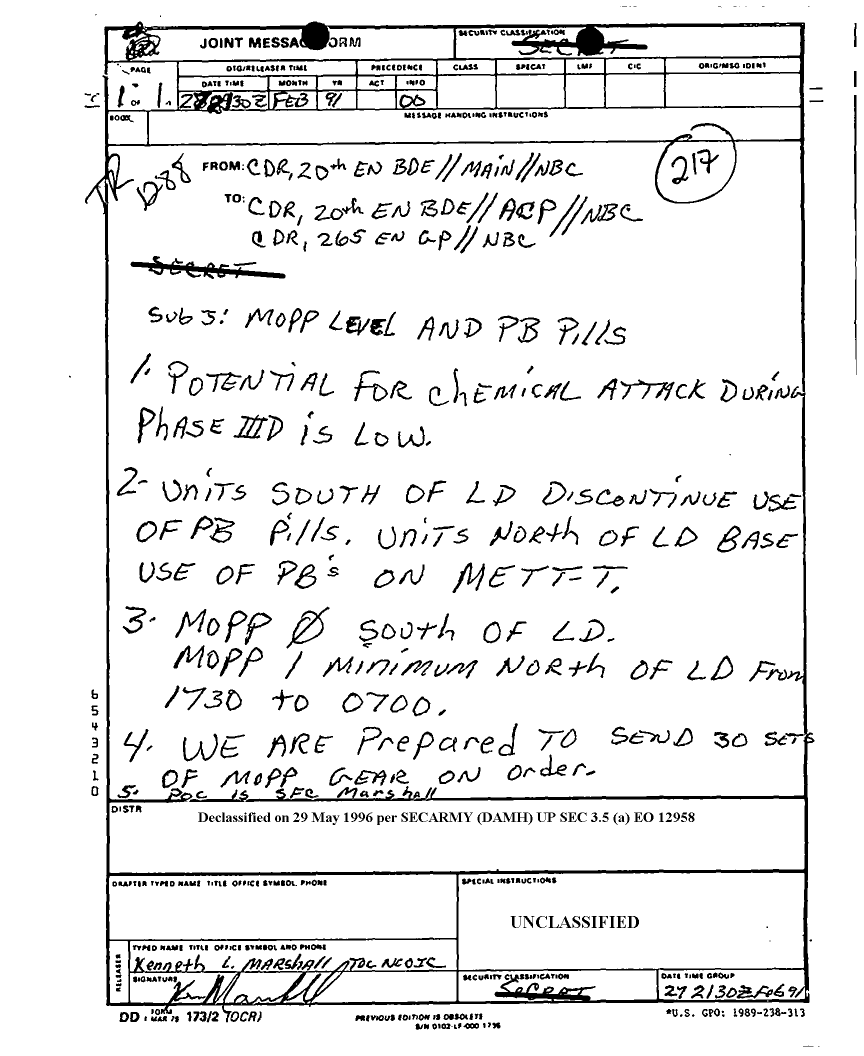 JOINT MESSAG FORM
SECURITY CLASSIFICATION
SECRET
PAGE
DTG/RELEASER TIME
PRECEDENCE
CLASS
SPECAT
LMF
CIC
ORIG/MSG IDENT
DATE TIME
MONTH
YR
ACT
INFO
1 OF 1
FEB
91
OO
BOOK
MESSAGE HANDLING INSTRUCTIONS
217
FROM: CDR, 20th EN BDE//MAIN//NBC
TO: CDR, 20th EN BDE//ACP//NBC
CDR, 265 EN GP//NBC
SECRET
SUBJ: MOPP LEVEL AND PB Pills
1. POTENTIAL FOR CHEMICAL ATTACK DURING
PHASE IIID is LOW.
2- UNITS SOUTH OF LD DISCONTINUE USE
OF PB Pills. UNITS NORTH OF LD BASE
USE OF PB's ON METT-T.
3. MOPP Ø SOUTH OF LD.
MOPP 1 MINIMUM NORTH OF LD From
1730 to 0700.
4. WE ARE Prepared TO SEND 30 SETS
OF MOPP GEAR ON Order.
5. POC is SFC Marshall
6
5
4
3
2
1
0
DISTR
Declassified on 29 May 1996 per SECARMY (DAMH) UP SEC 3.5 (a) EO 12958
DRAFTER TYPED NAME TITLE OFFICE SYMBOL. PHONE
SPECIAL INSTRUCTIONS
UNCLASSIFIED
RELEASER
TYPED NAME TITLE OFFICE SYMBOL AND PHONE
Kenneth L. MARSHALL TOC NCOIC
SIGNATURE
SECURITY CLASSIFICATION
SECRET
DATE TIME GROUP
272130Z Feb 91
DD FORM 1 MAR 79 173/2 (OCR)
PREVIOUS EDITION IS OBSOLETE
S/N 0102-LF-000 1736
*U.S. GPO: 1989-238-313